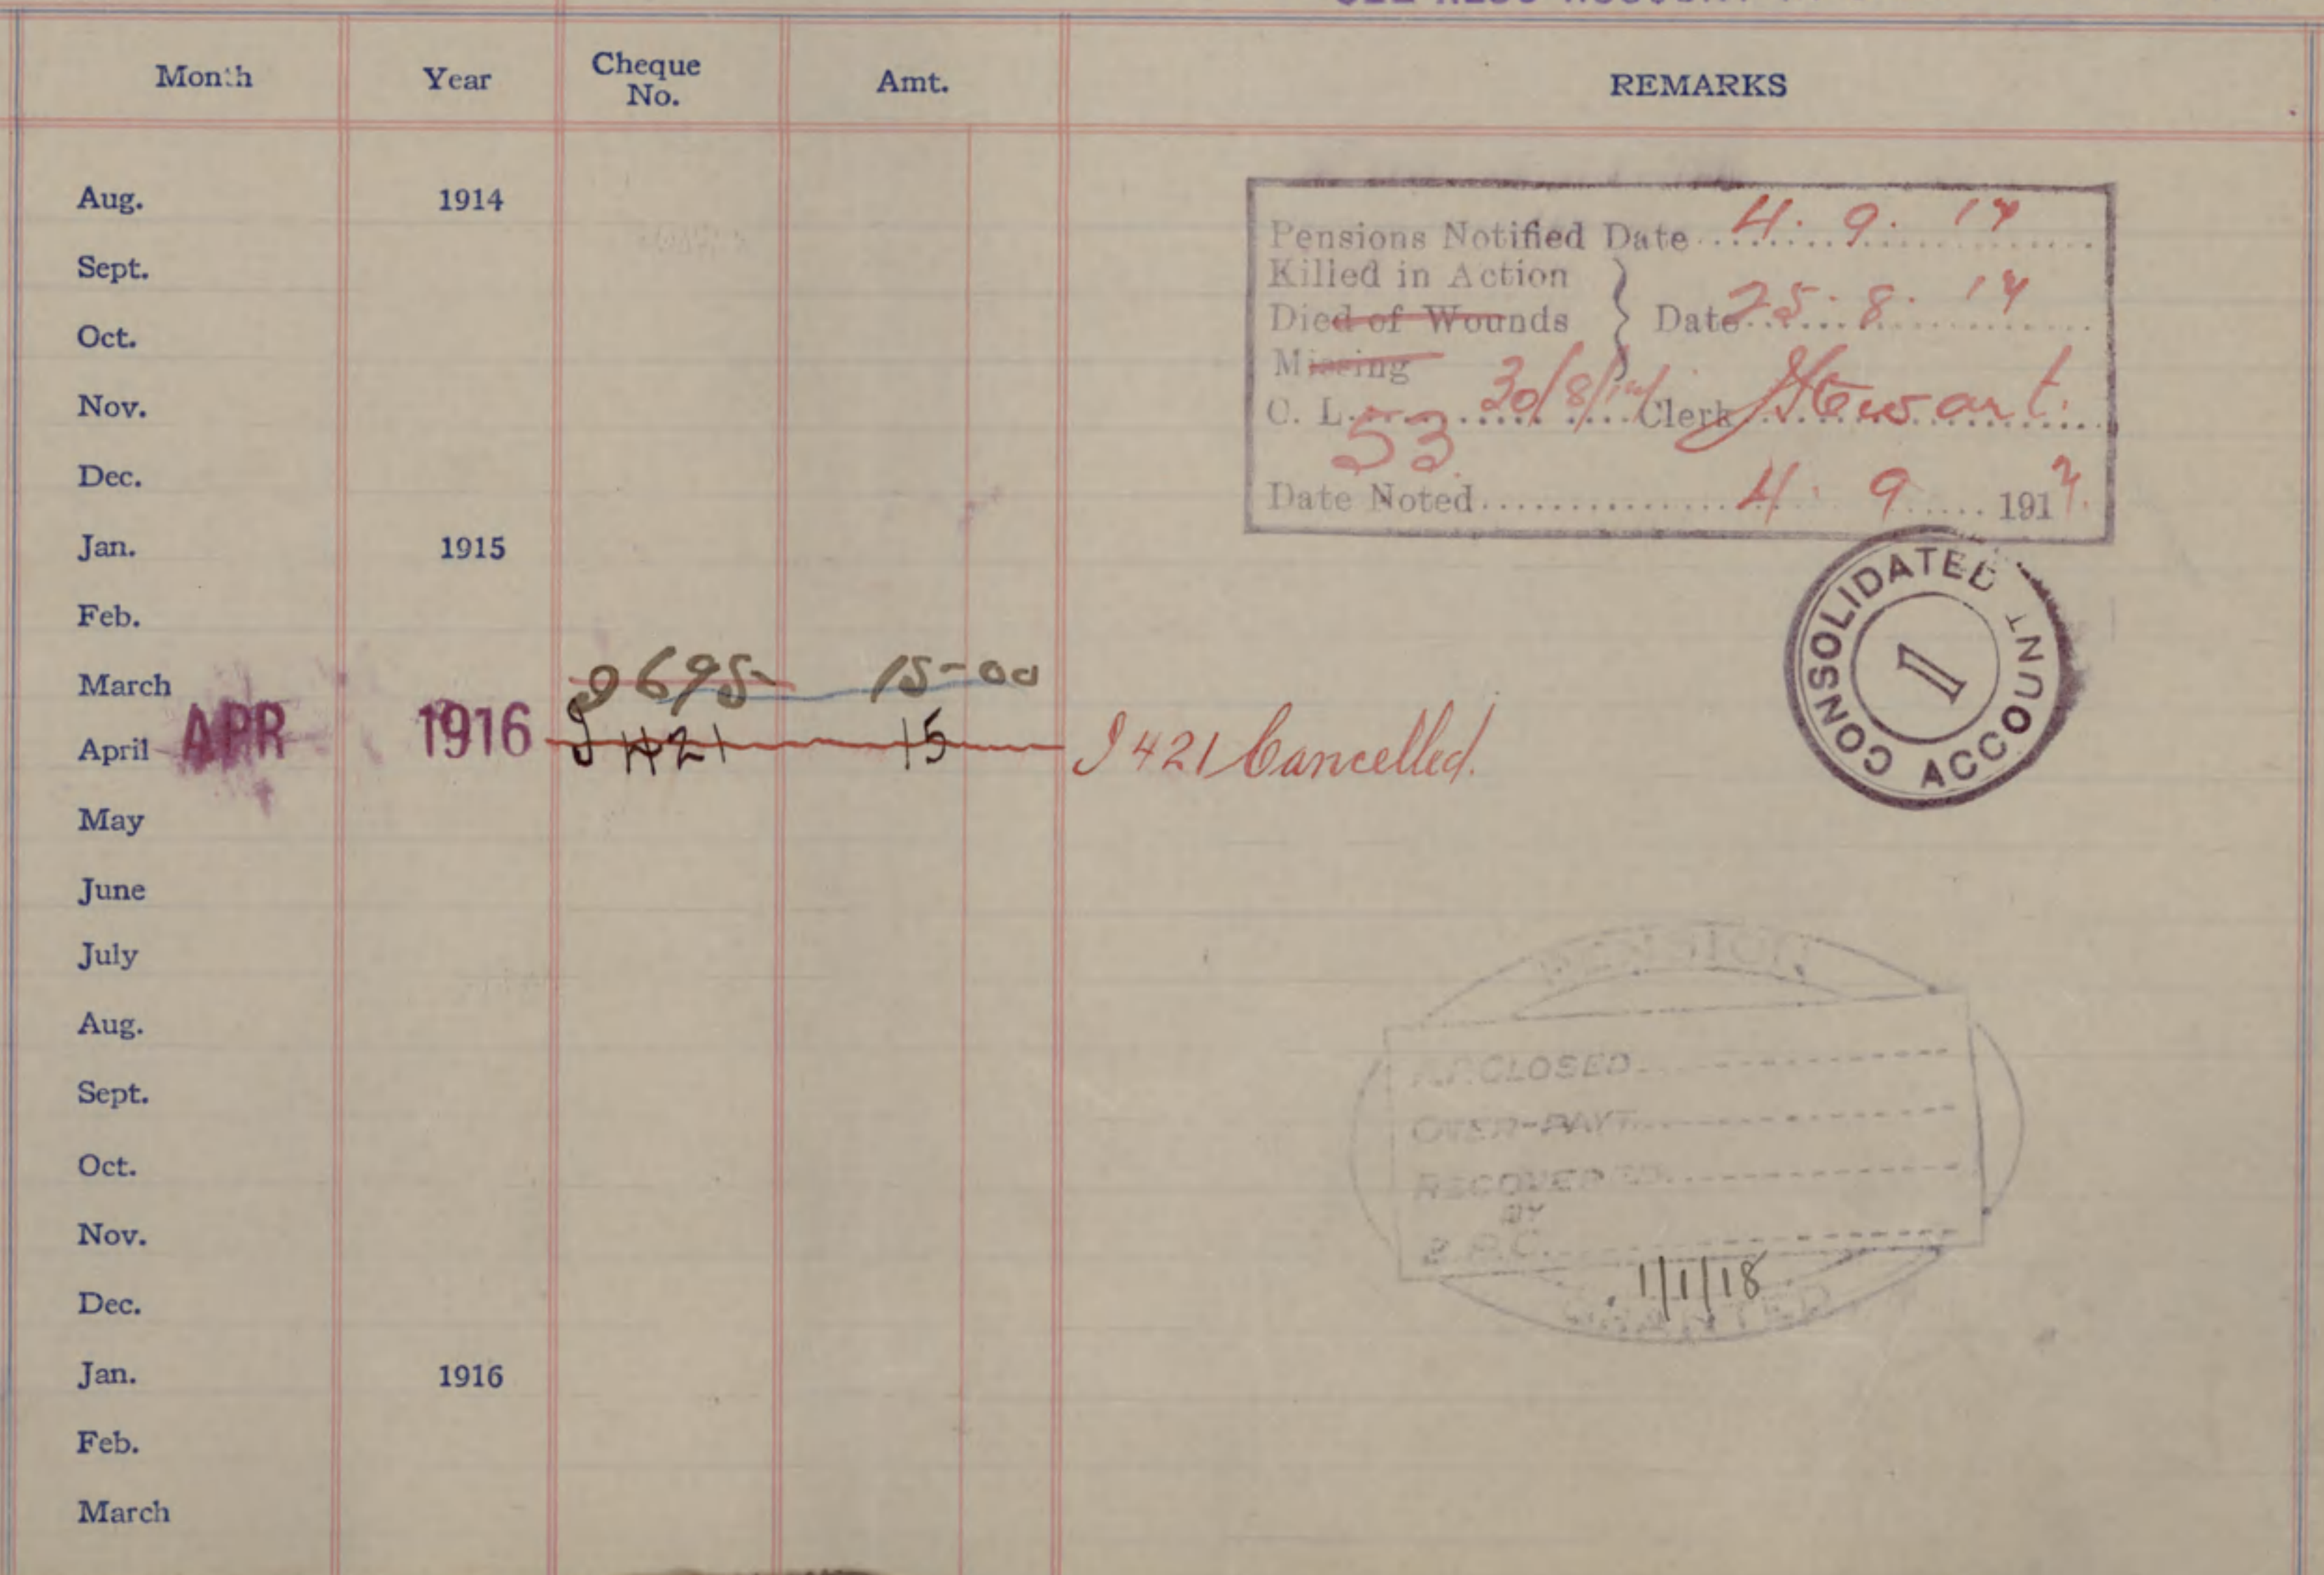 Month Year Cheque No. Amt. REMARKS
Aug. 1914
Sept.
Oct.
Nov.
Dec.
Jan. 1915
Feb.
March 9695 15-00
April APR 1916 J421 15 J421 Cancelled.
May
June
July
Aug.
Sept.
Oct.
Nov.
Dec.
Jan. 1916
Feb.
March
Pensions Notified Date 4. 9. 17
Killed in Action
Died of Wounds } Date 25. 8. 17
Missing
C. L. 53 30/8/17 Clerk Stewart.
Date Noted 4. 9 1917.
CONSOLIDATED ACCOUNT
I
PENSION
A.P. CLOSED
OVER-PAYT.
RECOVERED
BY
1/1/18
GRANTED